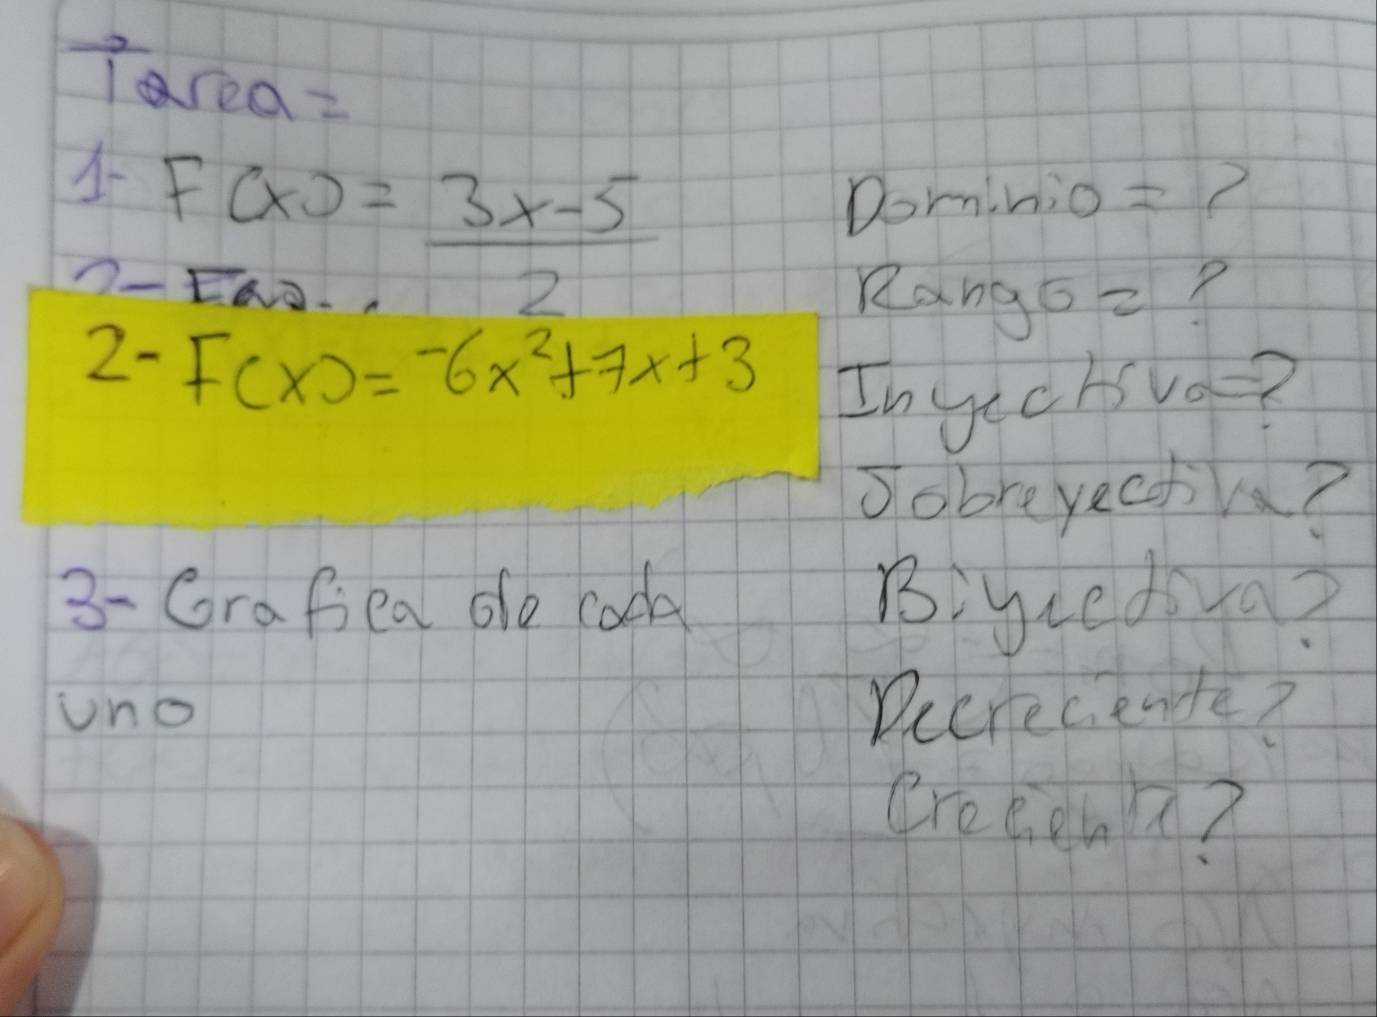 Tarea=
1- F(x) = 3x-5
2
2- F(x) = -6x²+7x+3
3- Grafica de cada
uno
Dominio = ?
Rango = ?
Inyectiva=?
Sobreyectiva?
Biyectiva?
Decreciente?
Creciente?